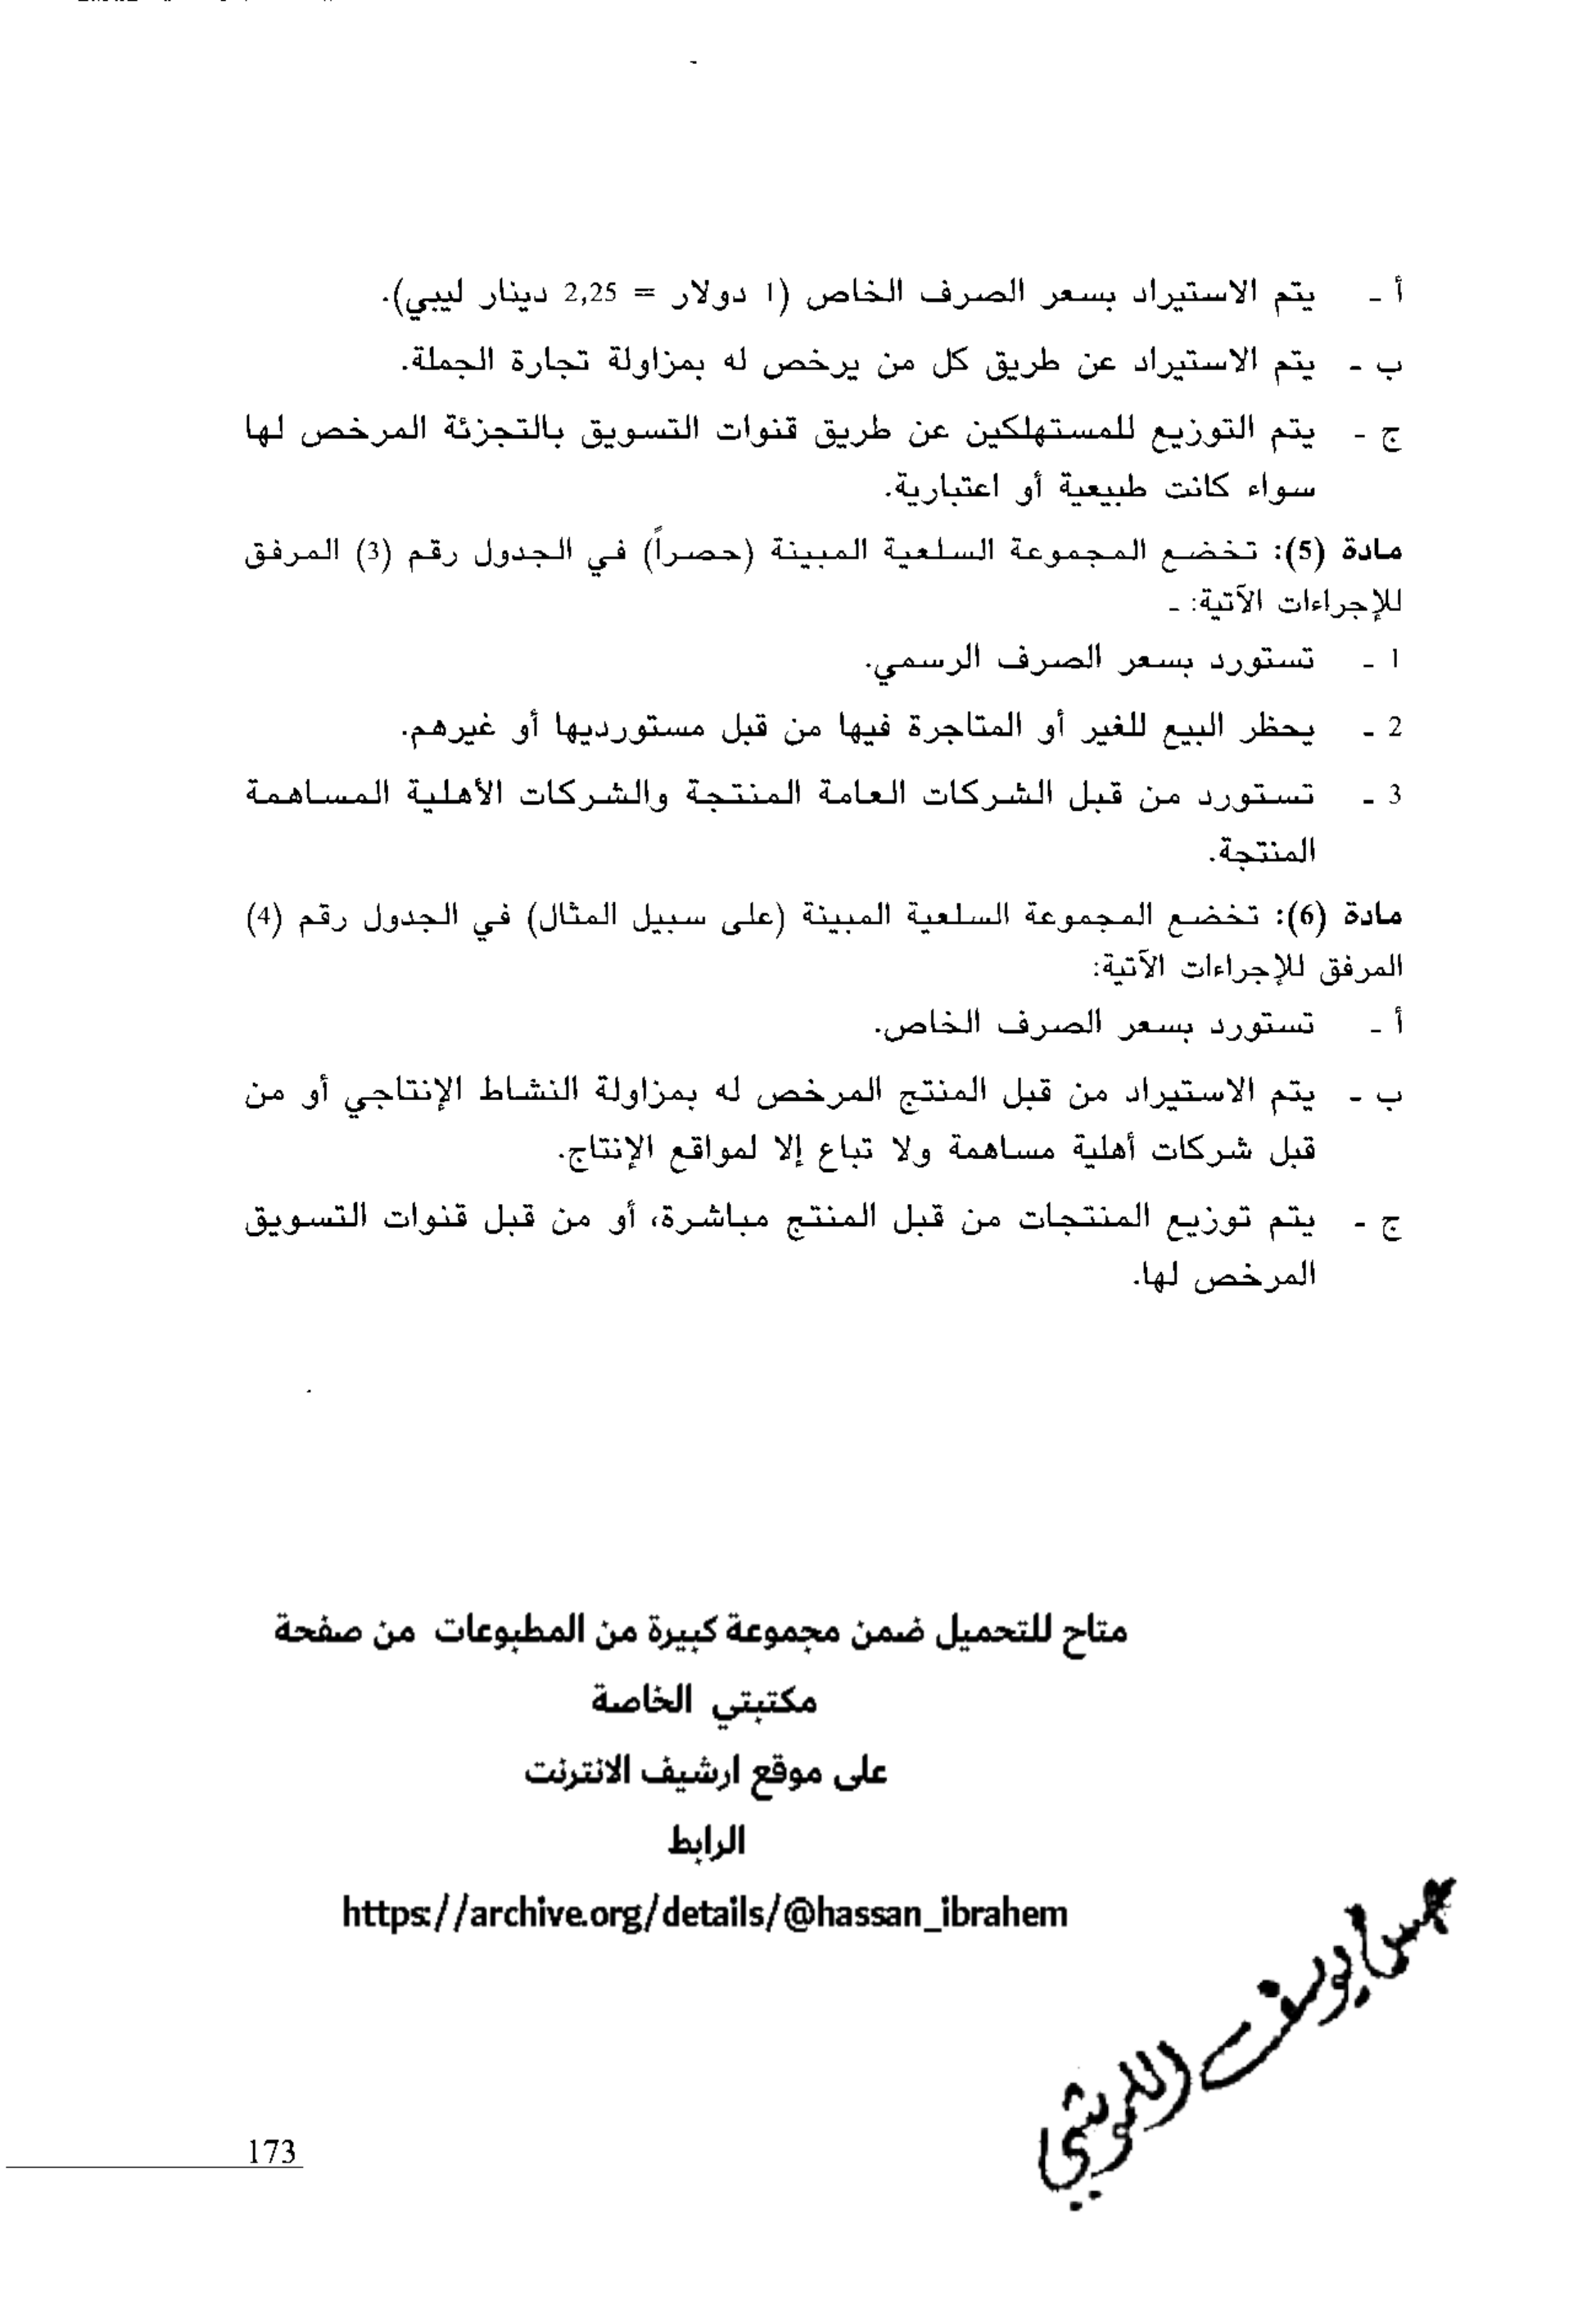 أ ـ يتم الاستيراد بسعر الصرف الخاص (1 دولار = 2,25 دينار ليبي).
ب ـ يتم الاستيراد عن طريق كل من يرخص له بمزاولة تجارة الجملة.
ج ـ يتم التوزيع للمستهلكين عن طريق قنوات التسويق بالتجزئة المرخص لها
سواء كانت طبيعية أو اعتبارية.
مادة (5): تخضع المجموعة السلعية المبينة (حصراً) في الجدول رقم (3) المرفق
للإجراءات الآتية: ـ
1 ـ تستورد بسعر الصرف الرسمي.
2 ـ يحظر البيع للغير أو المتاجرة فيها من قبل مستورديها أو غيرهم.
3 ـ تستورد من قبل الشركات العامة المنتجة والشركات الأهلية المساهمة
المنتجة.
مادة (6): تخضع المجموعة السلعية المبينة (على سبيل المثال) في الجدول رقم (4)
المرفق للإجراءات الآتية:
أ ـ تستورد بسعر الصرف الخاص.
ب ـ يتم الاستيراد من قبل المنتج المرخص له بمزاولة النشاط الإنتاجي أو من
قبل شركات أهلية مساهمة ولا تباع إلا لمواقع الإنتاج.
ج ـ يتم توزيع المنتجات من قبل المنتج مباشرة، أو من قبل قنوات التسويق
المرخص لها.
متاح للتحميل ضمن مجموعة كبيرة من المطبوعات من صفحة
مكتبتي الخاصة
على موقع ارشيف الانترنت
الرابط
https://archive.org/details/@hassan_ibrahem
173